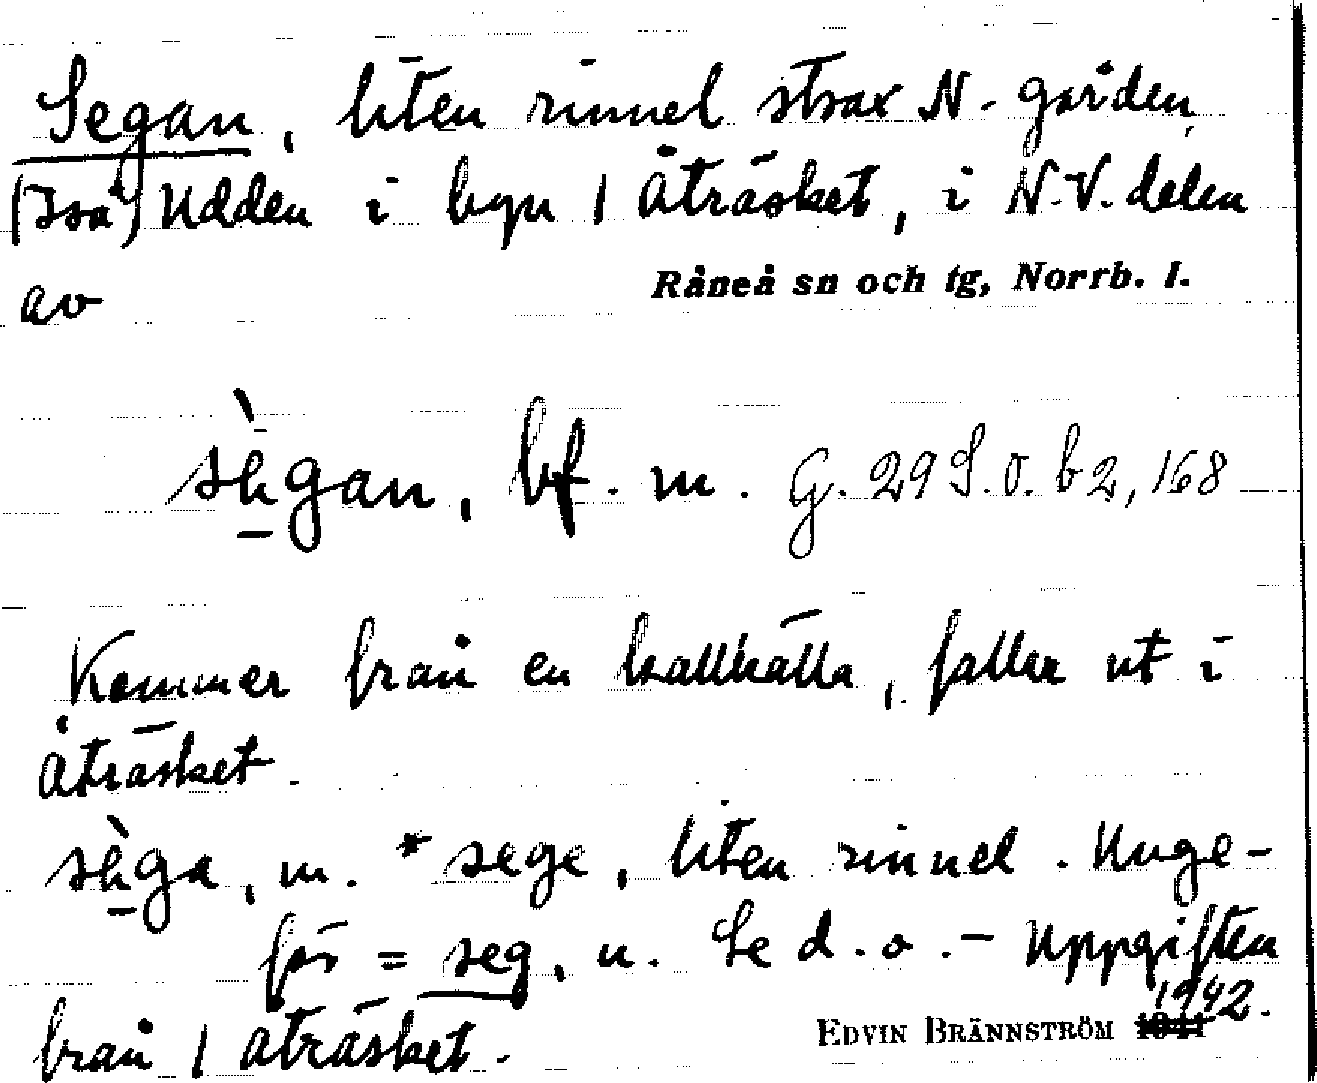 Segan, liten rinnel strax N. gården
(Två) Udden i byn / Åträsket, i N.V. delen
av Råneå sn och tg, Norrb. l.
sègan, bf. m. G. 29 S.O. b 2, 168
Kommer från en kallkälla, faller ut i
Åträsket.
sèga, m. *sege, liten rinnel. Unge-
för = seg, n. Se d. o. - Uppgiften
från / Åträsket. EDVIN BRÄNNSTRÖM 1941 1942.